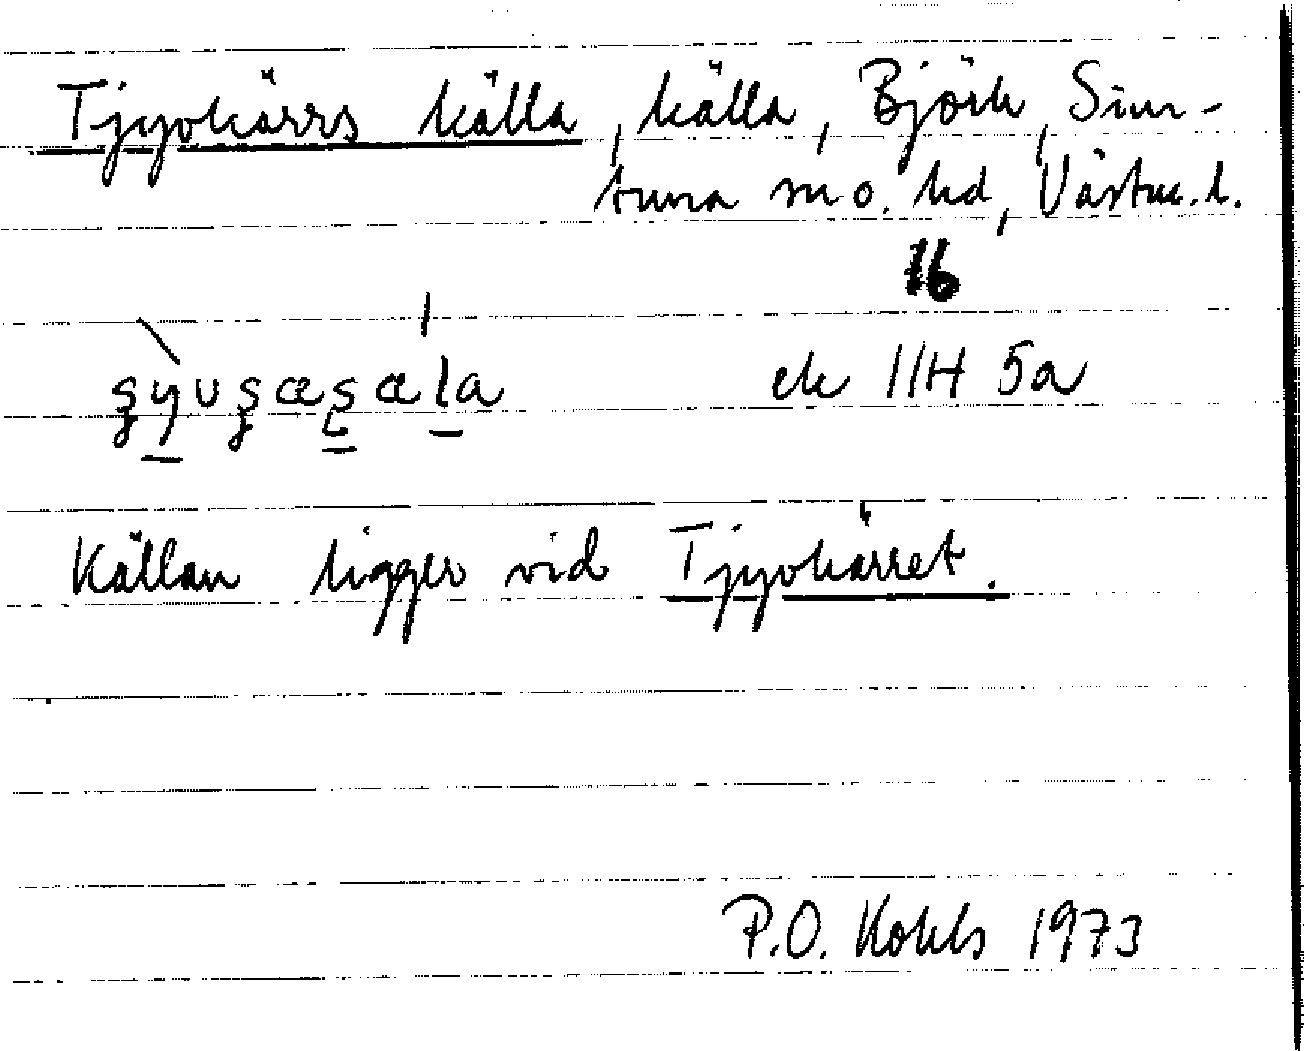 Tjyvkärrs källa, källa, Björk, Sim-
tuna sn o. hd, Västm. l.
16
ek 11H 5a
Källan ligger vid Tjyvkärret.
P.O. Kohls 1973